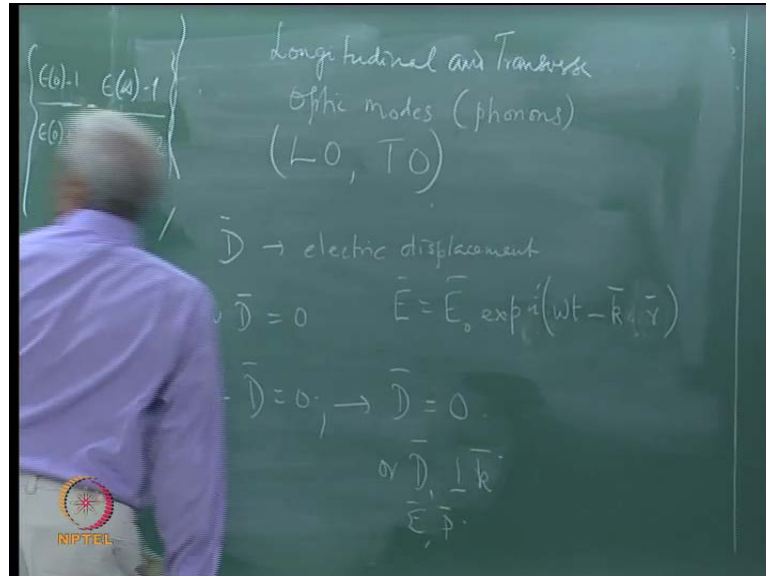 Longitudinal and Transverse
Optic modes (phonons)
(LO, TO)
ε(0)-1 ε(α)-1
ε(0) 2
D̄ → electric displacement
D̄ = 0 Ē = Ē₀ exp i(ωt - k̄ . r̄)
D̄ = 0, → D̄ = 0.
or D̄, ⊥ k̄
Ē, P̄.
NPTEL